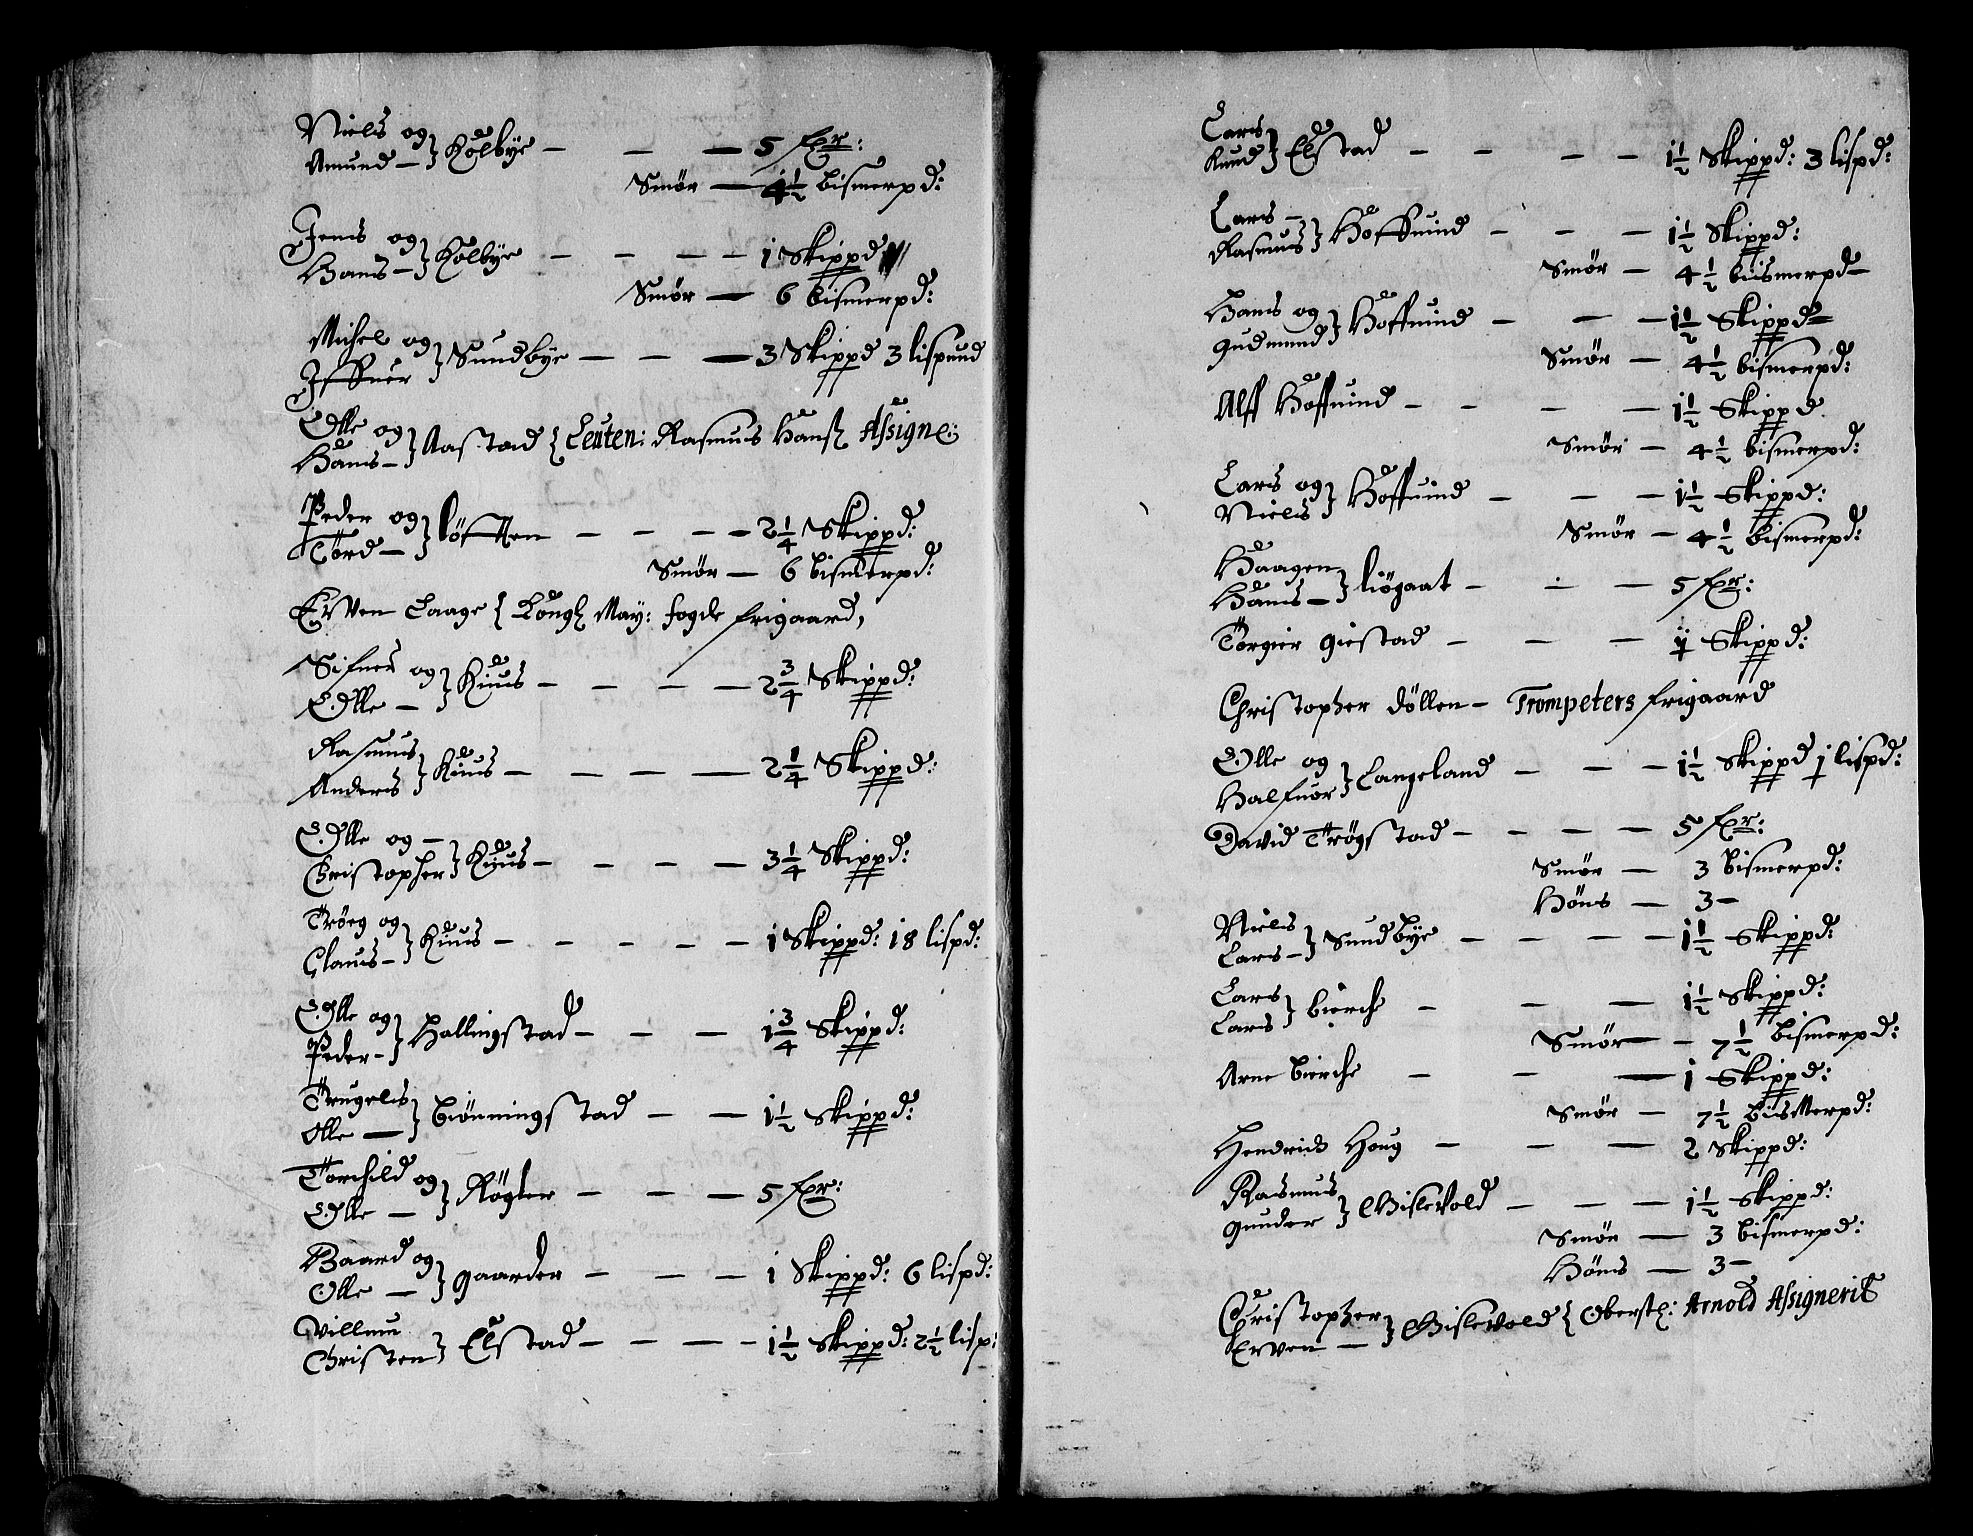 Niels og
Amund — } Kolbye — — — 5 fxr:
Smør — 4½ bismerpd:
Jens og
Hans — } Kolbye — — — — 1 Skippd
Smør — 6 bismerpd:
Michel og
Iffuer } Sundbye — — — 3 Skippd 3 lispund
Olle og
Hans — } Aastad { Leuten: Rasmus Hansz Assigne:
Peder og
Tord — } löfften — — — — 2¼ Skippd:
Smør — 6 bismerpd:
Erven Laage { Kongl May: fogde frigaard,
Sifuer og
Olle — } Kiuus — — — — 2¾ Skippd:
Rasmus
Anders } Kiuus — — — — 2¼ Skippd:
Olle og —
Christopher } Kiuus — — — — 3¼ Skippd:
Tröeg og
Claus — } Kiuus — — — — — 1 Skippd: 18 lispd:
Olle og
Peder — } Hallingstad — — — 1¾ Skippd:
Trugels
Olle — } Bönningstad — — 1½ Skippd:
Torchild og
Olle — } Rögler — — — 5 fxr:
Baard og
Olle — } gaarder — — — 1 Skippd: 6 lispd:
Villum
Christen } Elstad — — — — 1½ Skippd: 2½ lisp:
Lars
Knud } Elstad — — — — 1½ Skippd: 3 lispd:
Lars —
Rasmus } Hoffuind — — — 1½ Skippd:
Smør — 4½ biismerpd —
Hans og
gudmund } Hoffuind — — — 1½ Skippd
Smør — 4½ bismerpd:
Alff Hoffuind — — — — 1½ Skippd
Smør — 4½ bismerpd:
Lars og
Niels } Hoffuind — — — 1½ Skippd:
Smør — 4½ bismerpd:
Haagen
Hans — } liögaat — — — 5 fxr:
Torgier giestad — — — 1 Skippd:
Christopher döllen — Trompeters frigaard
Olle og
Halfuor } Langeland — — — 1½ Skippd 1 lispd:
David Trögstad — — — — 5 fxr:
Smør — 3 Bismerpd:
Höns — 3 —
Niels
Lars — } Sundbye — — — — 1½ Skippd:
Lars
Lars } bierche — — — 1½ Skippd:
Smør — — 7½ bismerpd:
Arne bierche — — — 1 Skippd:
Smør — 7½ biismerpd:
Hendrich Houg — — — 2 Skippd:
Rasmus
gunder } Gislevold — — — 1½ Skippd:
Smør — 3 bismerpd:
Höns — 3 —
Christopher
Erven — } Gislevold { Oberstl: Arnold Assignerit